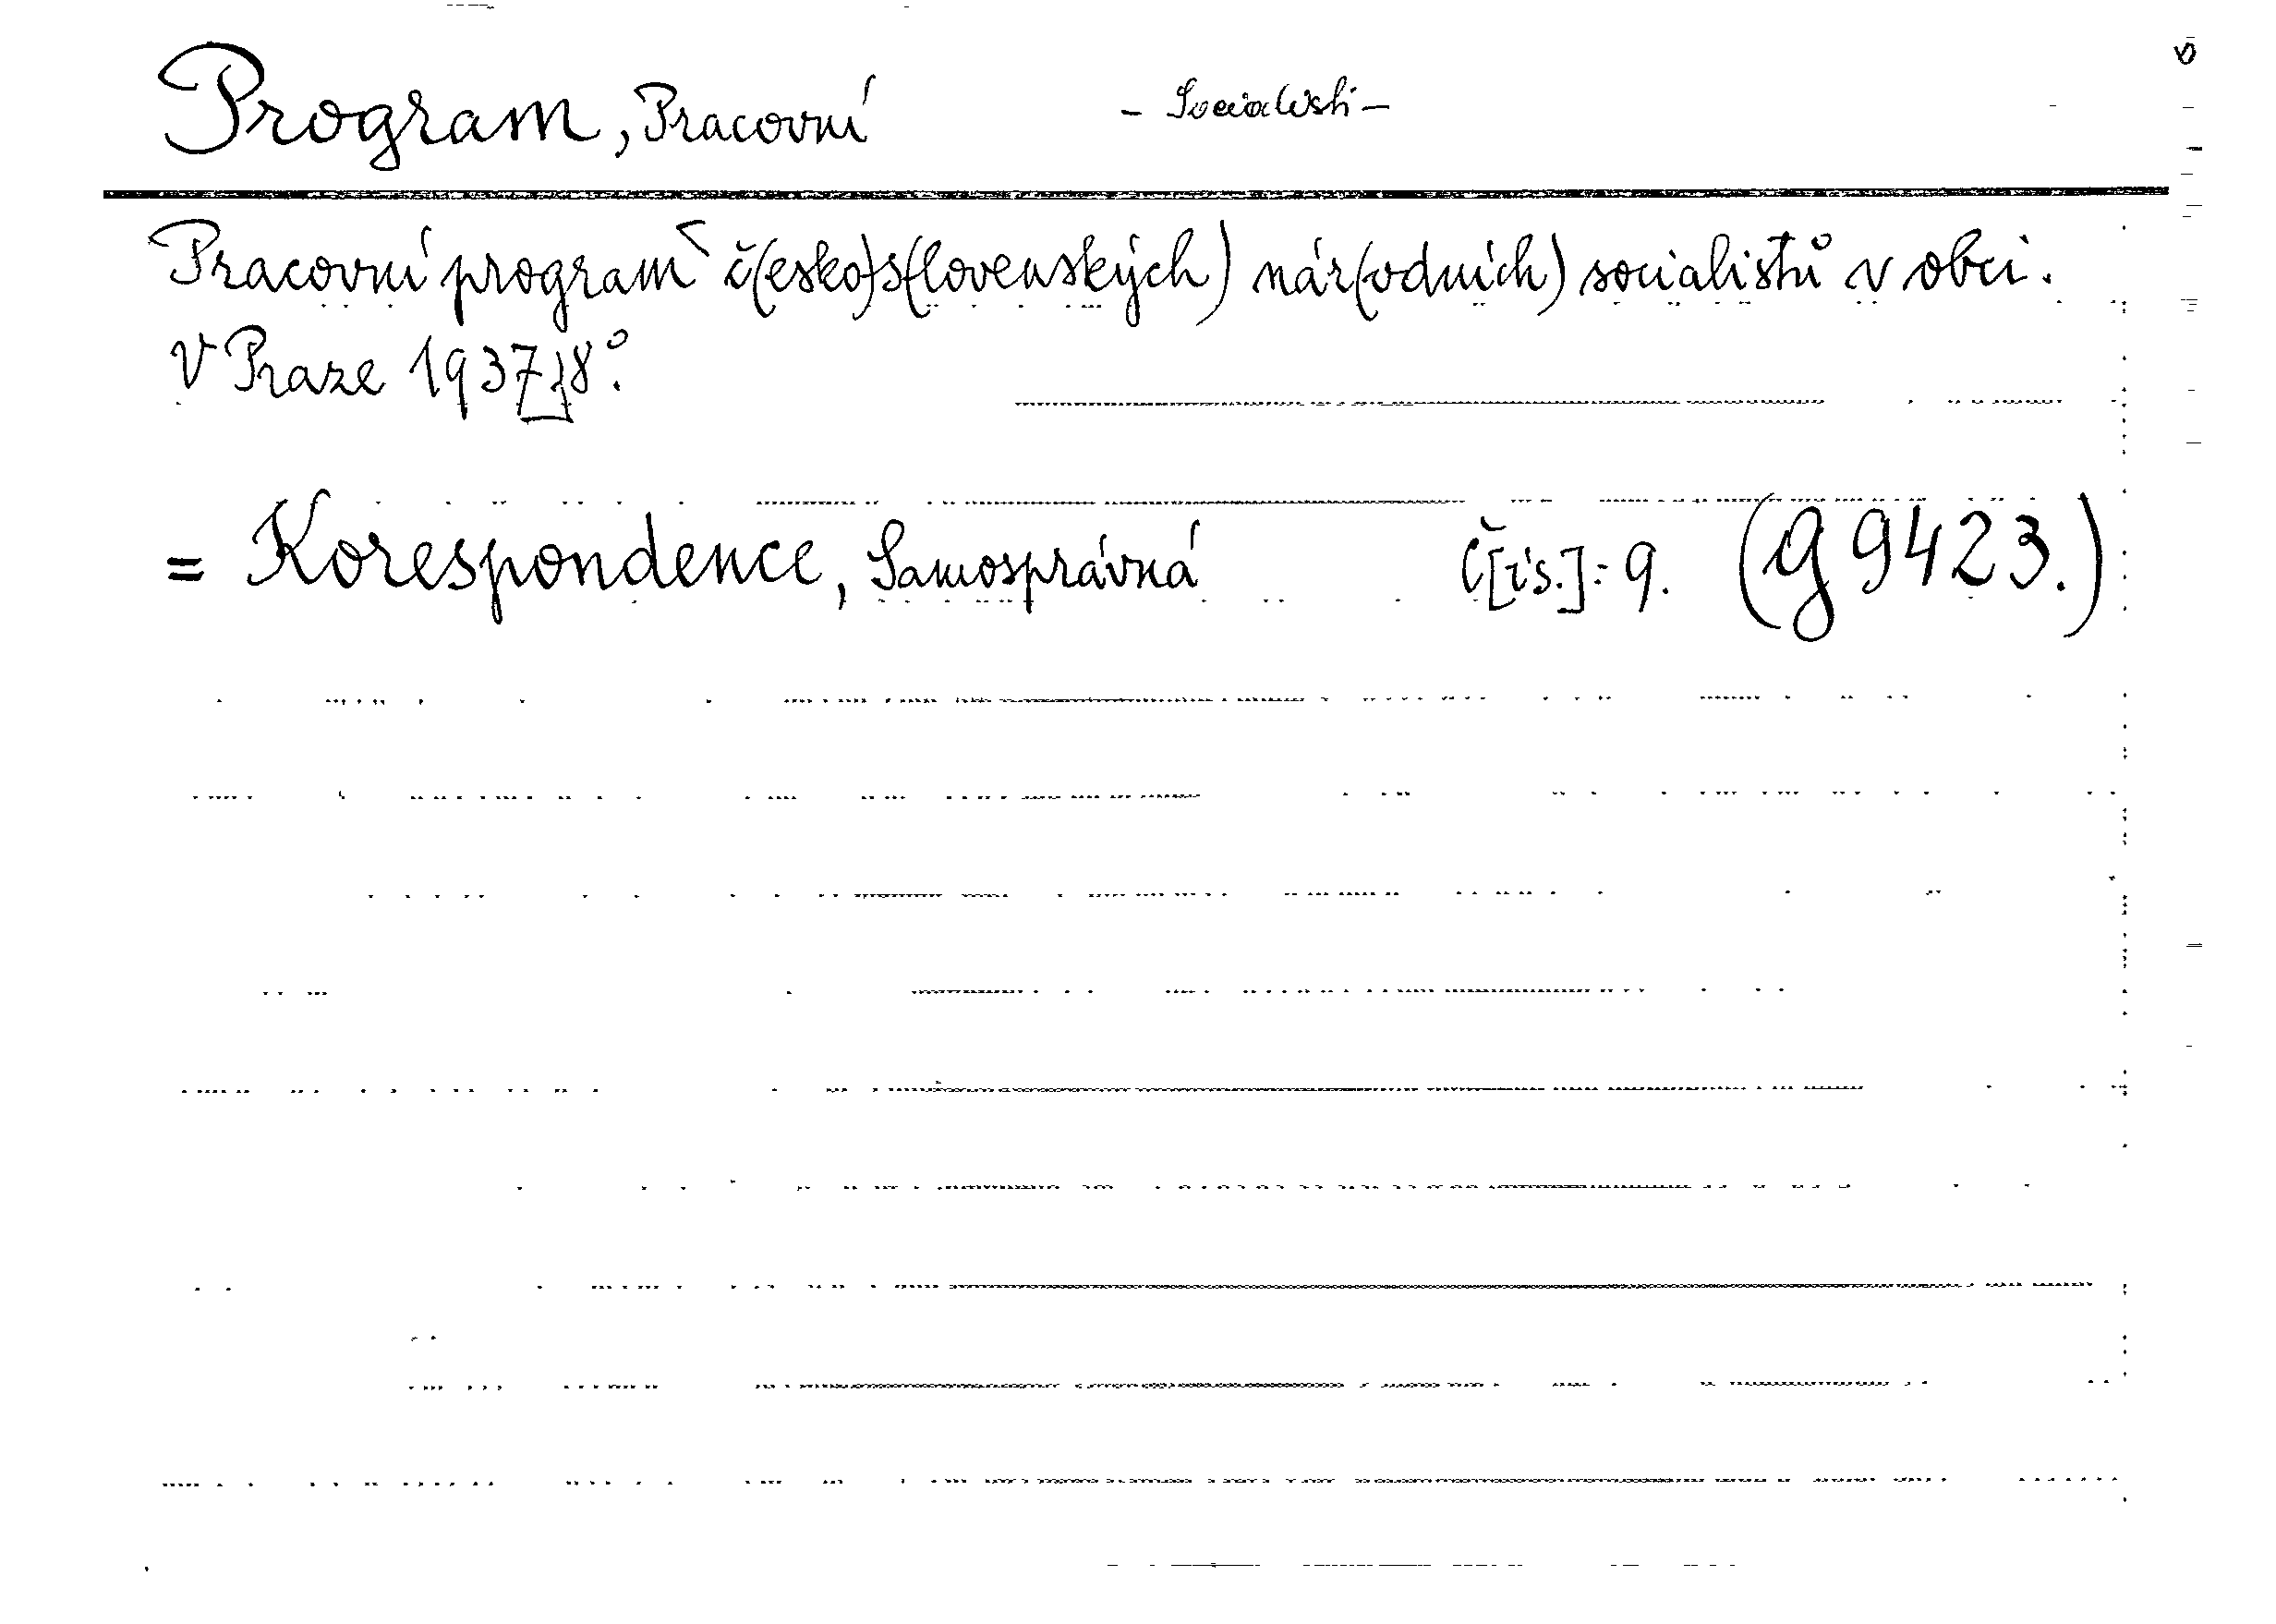 Program, Pracovní - Socialisti -
Pracovní program č(esko)s(lovenských) nár(odních) socialistů v obci.
V Praze 1937, 8°.
= Korespondence, Samosprávná Č[ís.]: 9. (g 9423.)